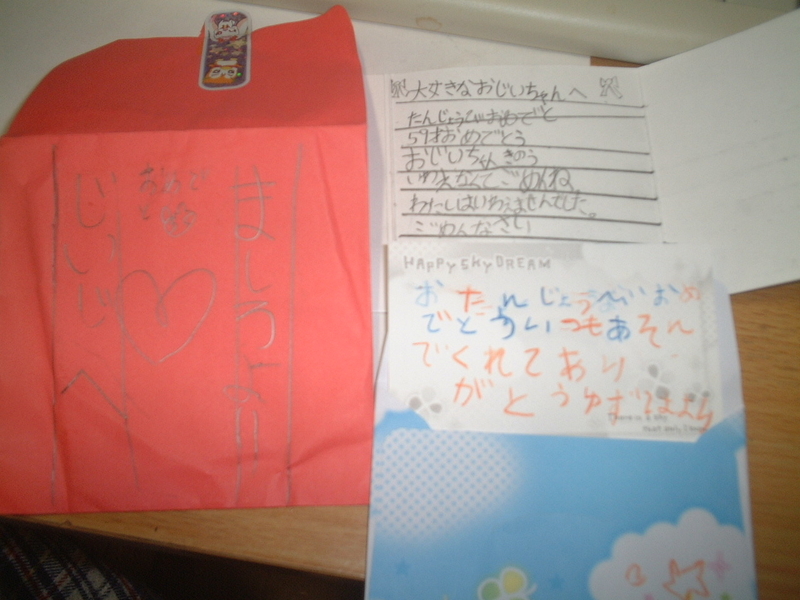 じいじへ
おめで
と
ましろより
大好きなおじいちゃんへ
たんじょうびおめでと
59才おめでとう
おじいちゃんきのう
いわえなくてごめんね。
わたしはいわえませんでした。
ごめんなさい
HAPPY SKY DREAM
おたんじょうびおめ
でとういつもあそん
でくれてあり
がとう